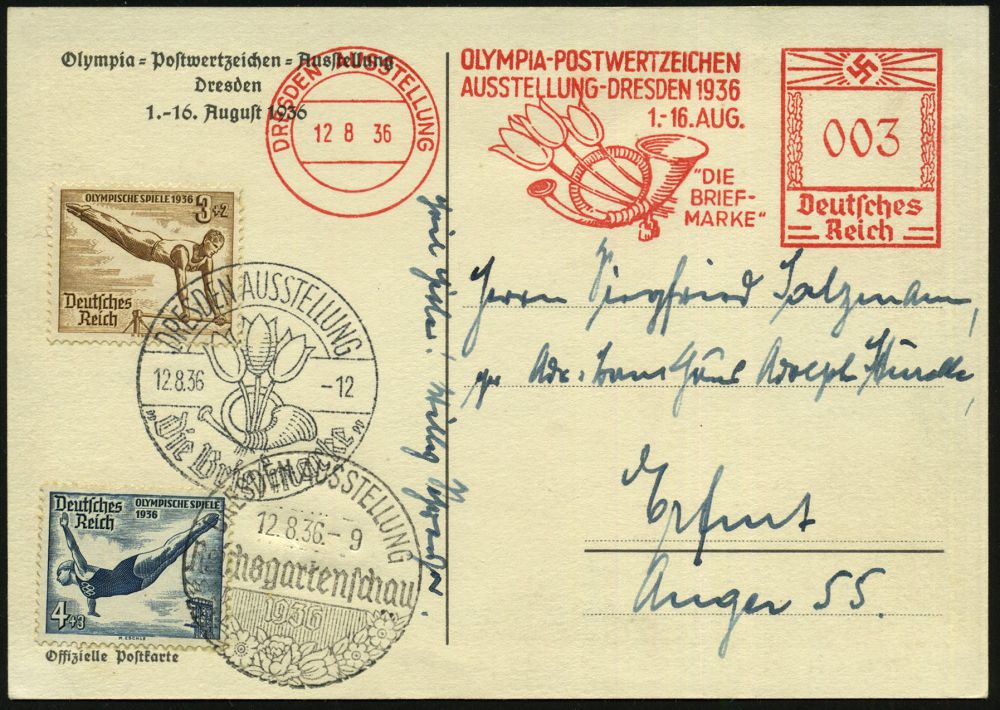 Olympia-Postwertzeichen-Ausstellung
Dresden
1.-16. August 1936
DRESDEN AUSSTELLUNG
12 8 36
OLYMPIA-POSTWERTZEICHEN
AUSSTELLUNG-DRESDEN 1936
1.-16. AUG.
"DIE
BRIEF-
MARKE"
003
Deutsches
Reich
OLYMPISCHE SPIELE 1936 3+2
Deutsches
Reich
DRESDEN AUSSTELLUNG
12.8.36 -12
"Die Briefmarke"
Deutsches
Reich
OLYMPISCHE SPIELE
1936
4+3
M. ESCHLE
DRESDEN AUSSTELLUNG
12.8.36.-9
Reichsgartenschau
1936
Offizielle Postkarte
Herrn Siegfried Salzmann,
Adolph
Erfurt
Anger 55.